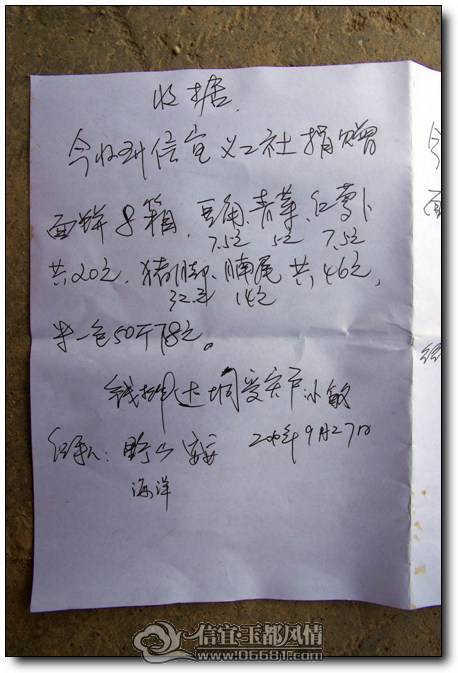 收据.
今收到信宜义工社捐赠
面饼8箱、豆角、青菜、红萝卜
7.5元 5元 7.5元
共20元、猪脚、腩尾共46元,
32元 14元
米一包50斤78元。
钱排达垌受灾户小敏
经手人: 野山 9月27日
海洋
信宜·玉都风情
www.06681.com